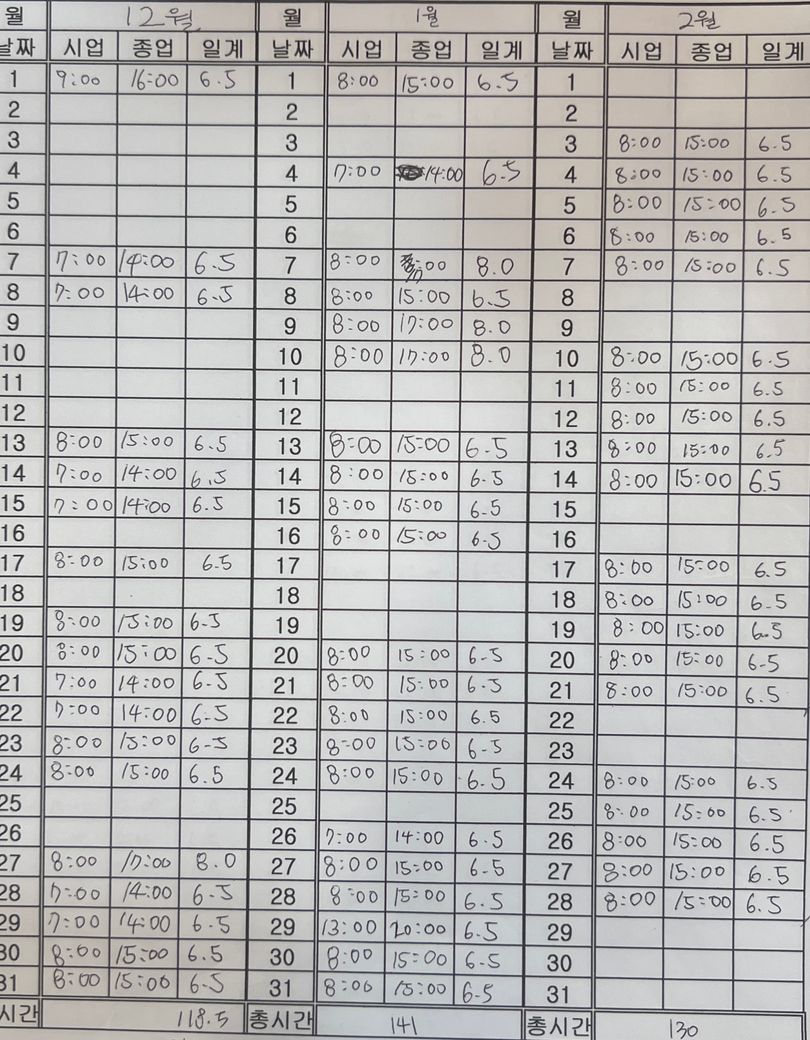 월 12월 월 1월 월 2월
날짜 시업 종업 일계 날짜 시업 종업 일계 날짜 시업 종업 일계
1 9:00 16:00 6.5 1 8:00 15:00 6.5 1
2 2 2
3 3 3 8:00 15:00 6.5
4 4 7:00 14:00 6.5 4 8:00 15:00 6.5
5 5 5 8:00 15:00 6.5
6 6 6 8:00 15:00 6.5
7 7:00 14:00 6.5 7 8:00 17:00 8.0 7 8:00 15:00 6.5
8 7:00 14:00 6.5 8 8:00 15:00 6.5 8
9 9 8:00 17:00 8.0 9
10 10 8:00 17:00 8.0 10 8:00 15:00 6.5
11 11 11 8:00 15:00 6.5
12 12 12 8:00 15:00 6.5
13 8:00 15:00 6.5 13 8:00 15:00 6.5 13 8:00 15:00 6.5
14 7:00 14:00 6.5 14 8:00 15:00 6.5 14 8:00 15:00 6.5
15 7:00 14:00 6.5 15 8:00 15:00 6.5 15
16 16 8:00 15:00 6.5 16
17 8:00 15:00 6.5 17 17 8:00 15:00 6.5
18 18 18 8:00 15:00 6.5
19 8:00 15:00 6.5 19 19 8:00 15:00 6.5
20 8:00 15:00 6.5 20 8:00 15:00 6.5 20 8:00 15:00 6.5
21 7:00 14:00 6.5 21 8:00 15:00 6.5 21 8:00 15:00 6.5
22 7:00 14:00 6.5 22 8:00 15:00 6.5 22
23 8:00 15:00 6.5 23 8:00 15:00 6.5 23
24 8:00 15:00 6.5 24 8:00 15:00 6.5 24 8:00 15:00 6.5
25 25 25 8:00 15:00 6.5
26 26 7:00 14:00 6.5 26 8:00 15:00 6.5
27 8:00 17:00 8.0 27 8:00 15:00 6.5 27 8:00 15:00 6.5
28 7:00 14:00 6.5 28 8:00 15:00 6.5 28 8:00 15:00 6.5
29 7:00 14:00 6.5 29 13:00 20:00 6.5 29
30 8:00 15:00 6.5 30 8:00 15:00 6.5 30
31 8:00 15:00 6.5 31 8:00 15:00 6.5 31
시간 118.5 총시간 141 총시간 130